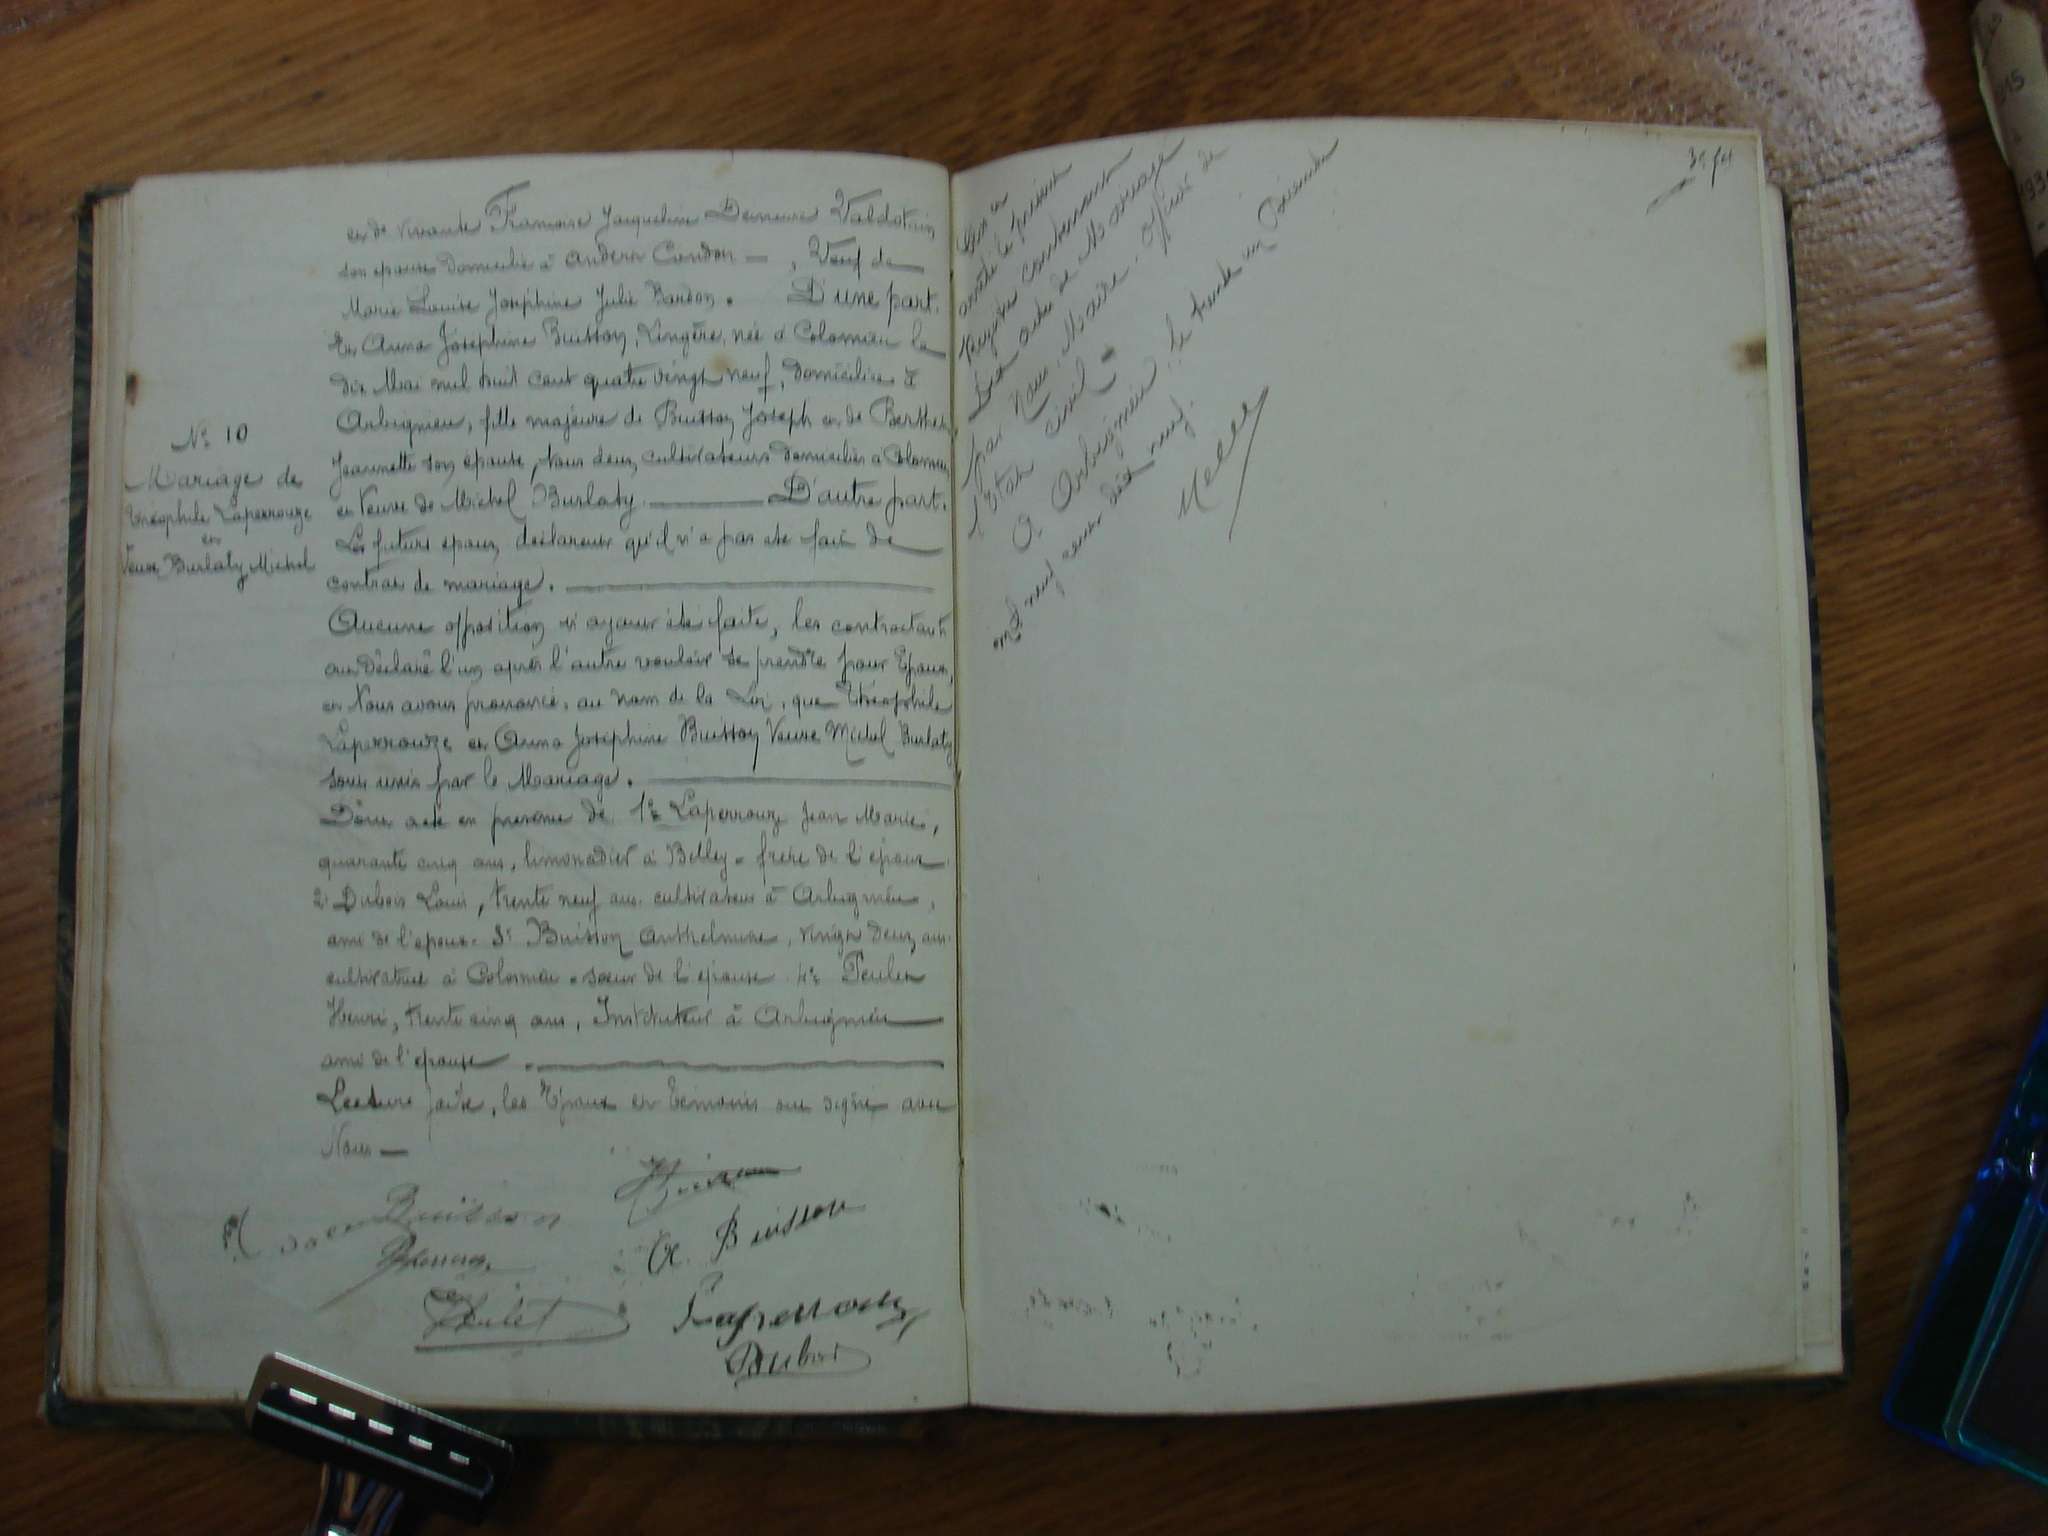 et de vivante Françoise Jacqueline Demeure Valdotain
son épouse domicilié à Andert Condon — , Veuf de
Marie Louise Joséphine Julie Bardon. D'une part.
Et Anna Joséphine Buisson, Lingère, née à Colomieu le
dix Mai mil huit cent quatre vingt neuf, domiciliée à
Arbignieu, fille majeure de Buisson Joseph et de Berthet
Jeannette son épouse, tous deux cultivateurs domiciliés à Colomieu
et Veuve de Michel Burlaty. — D'autre part.
Les futurs époux déclarent qu'il n'a pas été fait de
contrat de mariage.
Aucune opposition n'ayant été faite, les contractants
ont déclaré l'un après l'autre vouloir se prendre pour Epoux,
et Nous avons prononcé, au nom de la Loi, que Théophile
Laperrouze et Anna Joséphine Buisson Veuve Michel Burlaty
sont unis par le Mariage.
Dont acte en présence de 1° Laperrouze Jean Marie,
quarante cinq ans, limonadier à Belley - frère de l'époux
2° Dubois Louis, trente neuf ans cultivateur à Arbignieu,
ami de l'époux - 3° Buisson Anthelmine, vingt deux ans
cultivatrice à Colomieu - sœur de l'épouse 4° Peulet
Henri, trente cinq ans, Instituteur à Arbignieu
ami de l'épouse
Lecture faite, les Epoux et témoins ont signé avec
Nous —
N° 10
Mariage de
Théophile Laperrouze
et
Veuve Burlaty Michel
Buisson
A. Buisson
Peulet
Laperrouze
Dubois
arrêté le présent
Registre contenant
Dix actes de Mariage
par Nous, Maire, Officier de
l'Etat civil -
A Arbignieu, le trente un Décembre
mil neuf cent dix neuf.